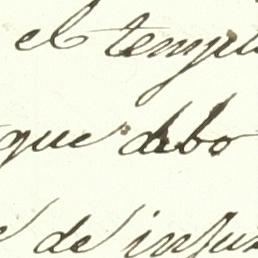 el templ
que debo
de infun